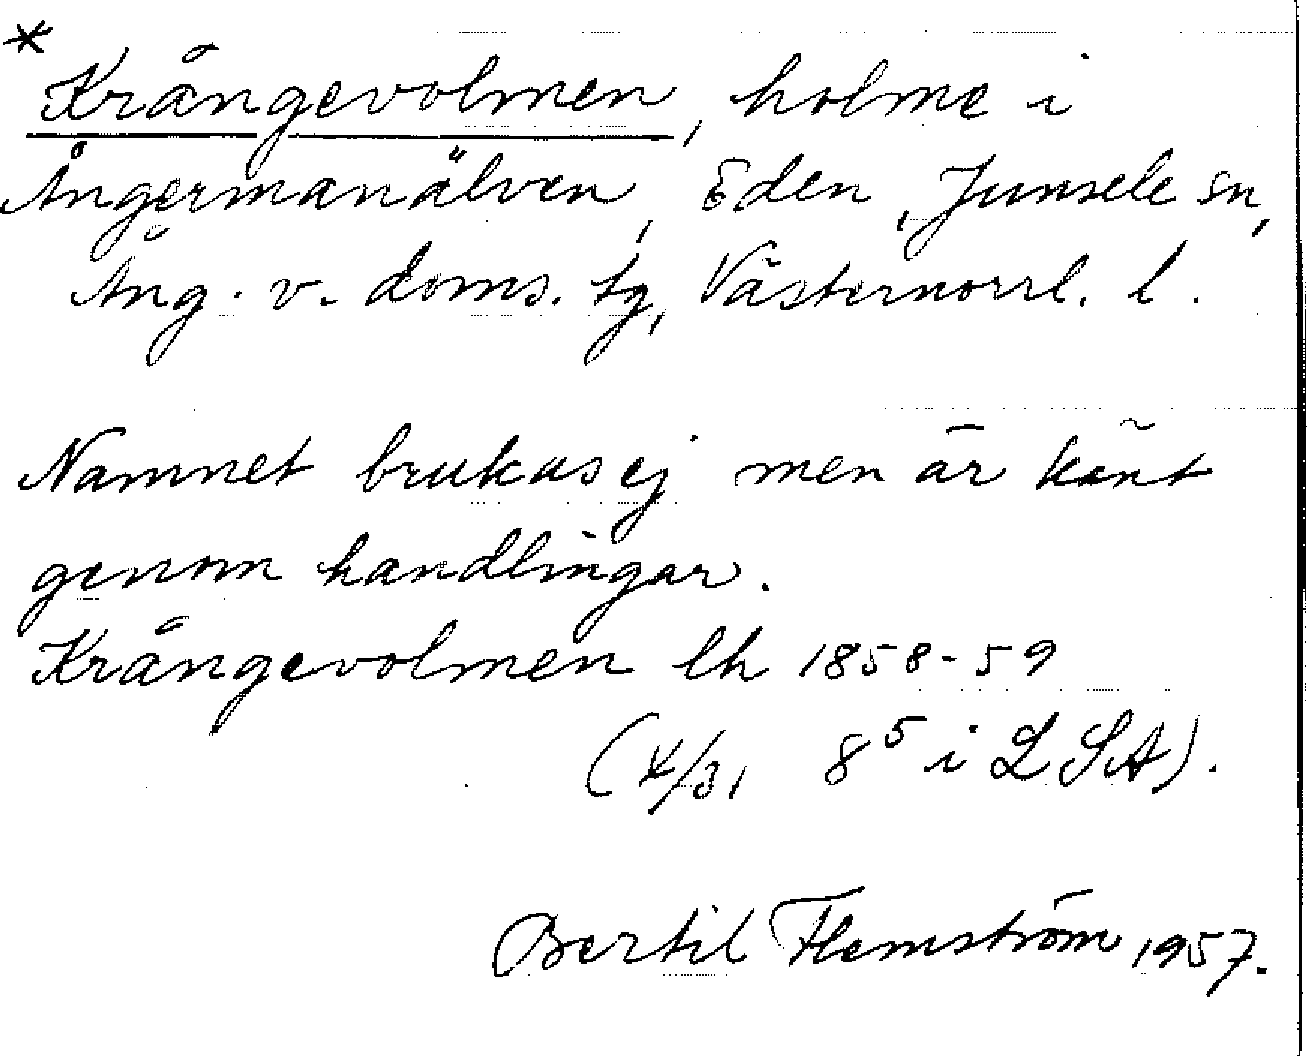 *
Krångevolmen, holme i
Ångermanälven, Eden, Junsele sn,
Ång. v. doms. tg, Västernorrl. l.
Namnet brukas ej men är känt
genom handlingar.
Krångevolmen lh 1858-59
(4/31 8⁵ i LSA).
Bertil Flemström 1957.